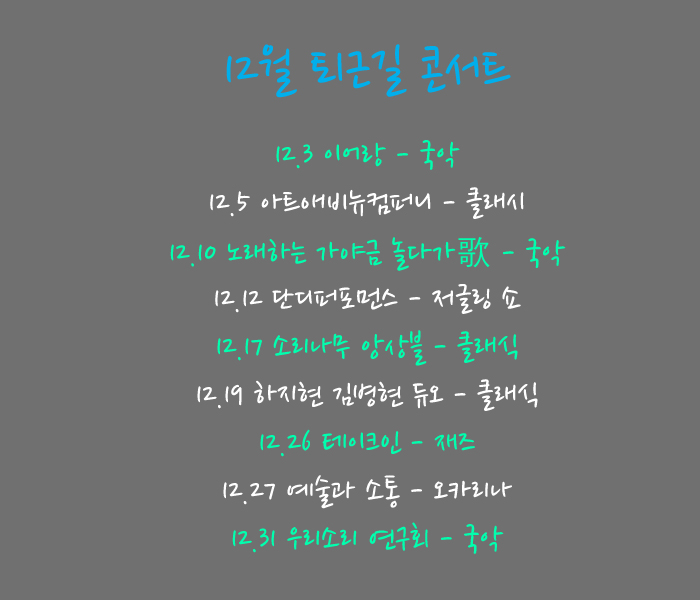 12월 퇴근길 콘서트
12.3 이어랑 - 국악
12.5 아트애비뉴컴퍼니 - 클래시
12.10 노래하는 가야금 놀다가歌 - 국악
12.12 단디퍼포먼스 - 저글링 쇼
12.17 소리나무 앙상블 - 클래식
12.19 하지현 김병현 듀오 - 클래식
12.26 테이크인 - 재즈
12.27 예술과 소통 - 오카리나
12.31 우리소리 연구회 - 국악